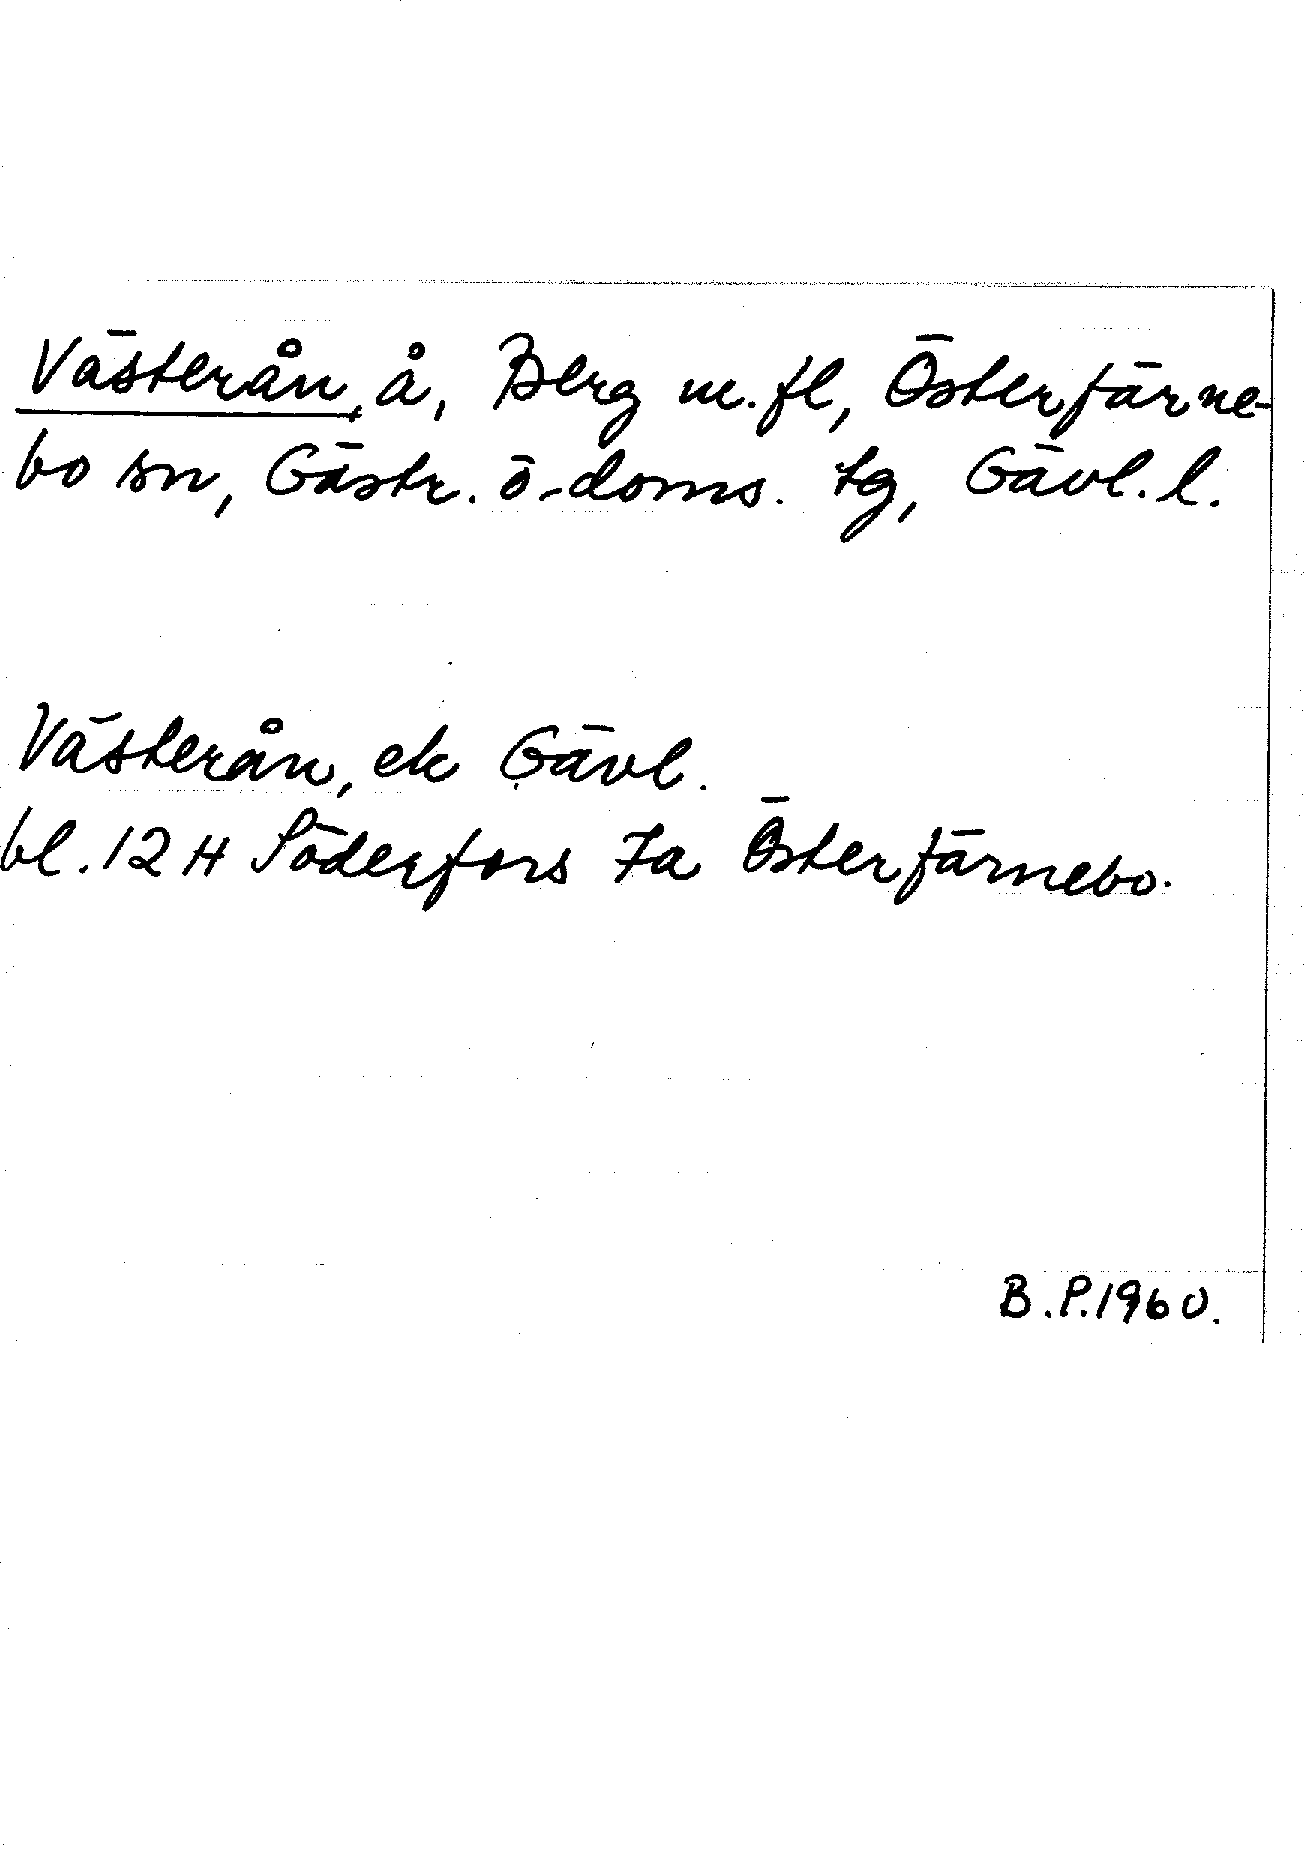 Västerån, å, Berg m.fl, Österfärne-
bo sn, Gästr. ö-doms. tg, Gävl. l.
Västerån, ek Gävl.
bl. 12 H Söderfors 7a Österfärnebo.
B.P.1960.